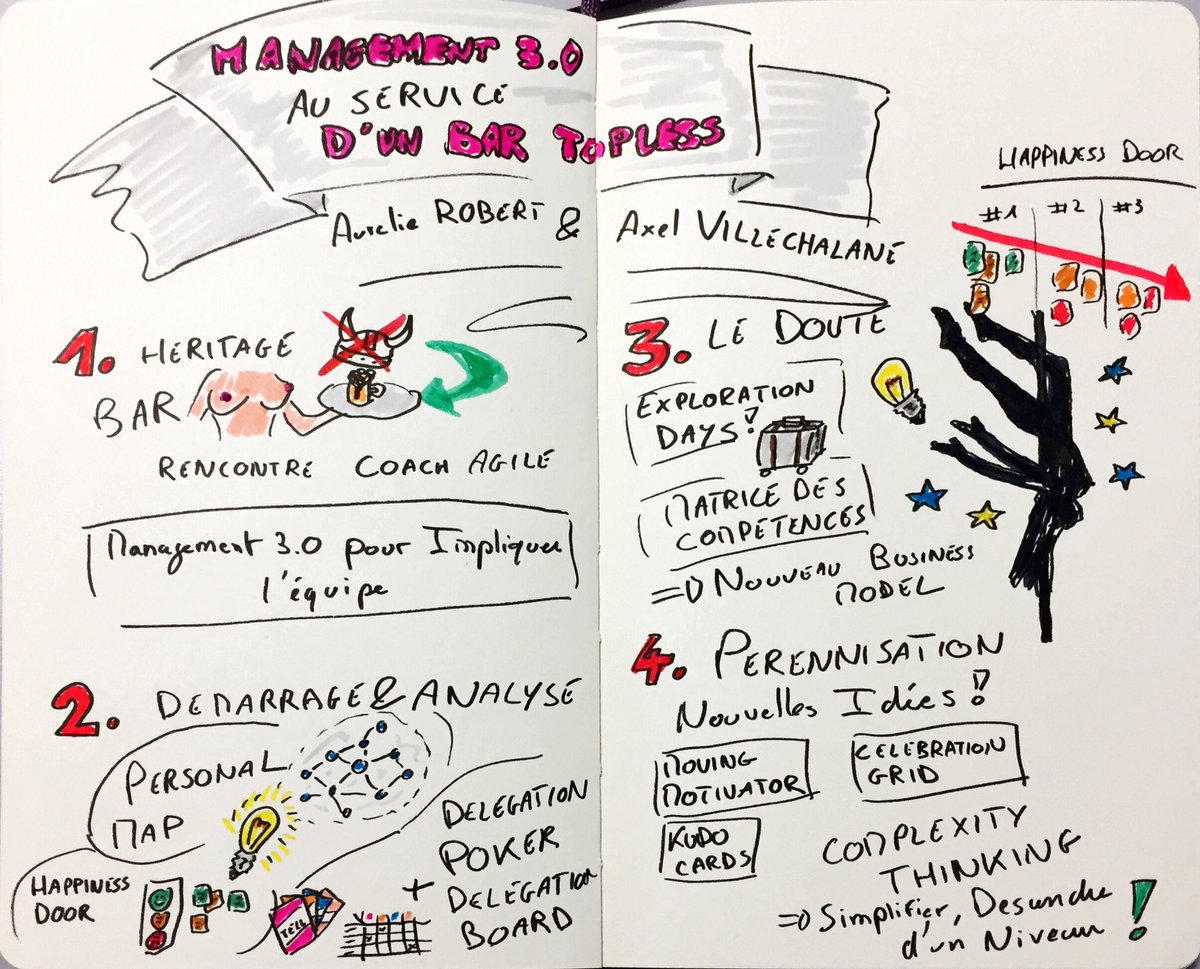 MANAGEMENT 3.0
AU SERVICE
D'UN BAR TOPLESS
Aurelie ROBERT &
Axel VILLECHALANE
1. HERITAGE
BAR
RENCONTRE COACH AGILE
Management 3.0 pour Impliquer
l'équipe
2. DEMARRAGE & ANALYSE
PERSONAL
MAP
HAPPINESS
DOOR
TELL
+
DELEGATION
POKER
DELEGATION
BOARD
HAPPINESS DOOR
#1 #2 #3
3. LE DOUTE
EXPLORATION
DAYS!
MATRICE DES
COMPÉTENCES
=> NOUVEAU BUSINESS
MODEL
4. PERENNISATION
Nouvelles Idées!
MOVING
MOTIVATOR
CELEBRATION
GRID
KUDO
CARDS
COMPLEXITY
THINKING
=> Simplifier, Descendre
d'un Niveau !